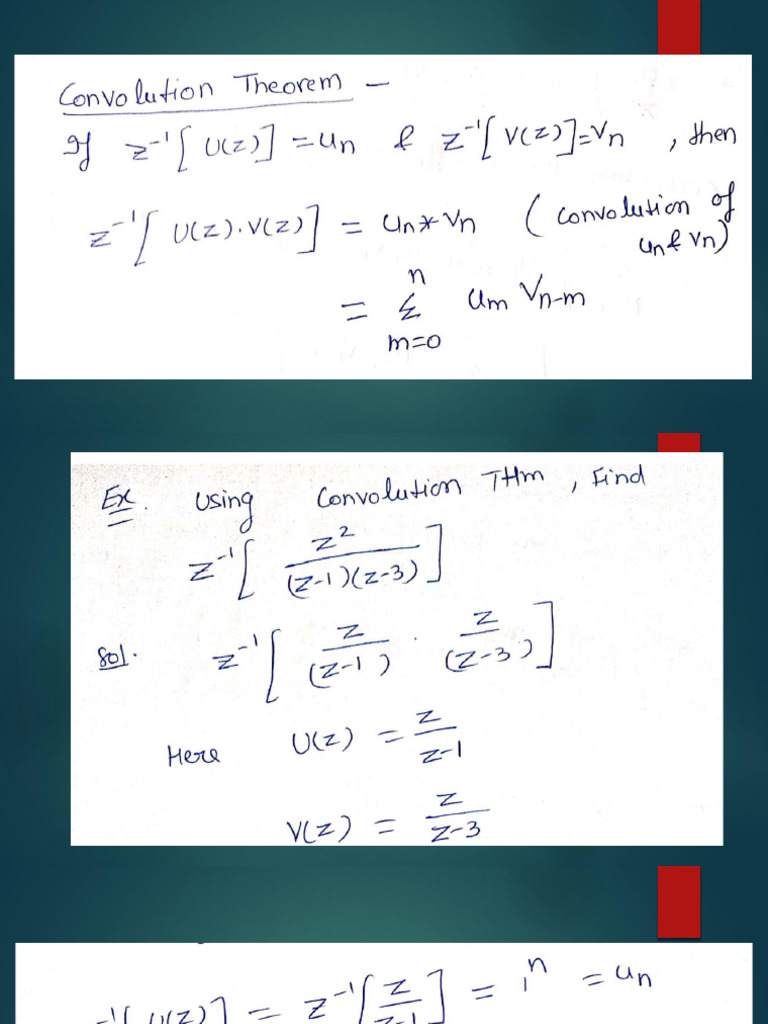 Convolution Theorem –
If z⁻¹[U(z)] = un & z⁻¹[V(z)] = vn , then
z⁻¹[U(z).V(z)] = un * vn (convolution of un & vn)
= Σ_{m=0}^{n} um vn-m
Ex. Using Convolution THm, Find
z⁻¹[ z² / (z-1)(z-3) ]
Sol. z⁻¹[ z/(z-1) . z/(z-3) ]
Here U(z) = z/z-1
V(z) = z/z-3
z⁻¹[U(z)] = z⁻¹[z/z-1] = 1ⁿ = un